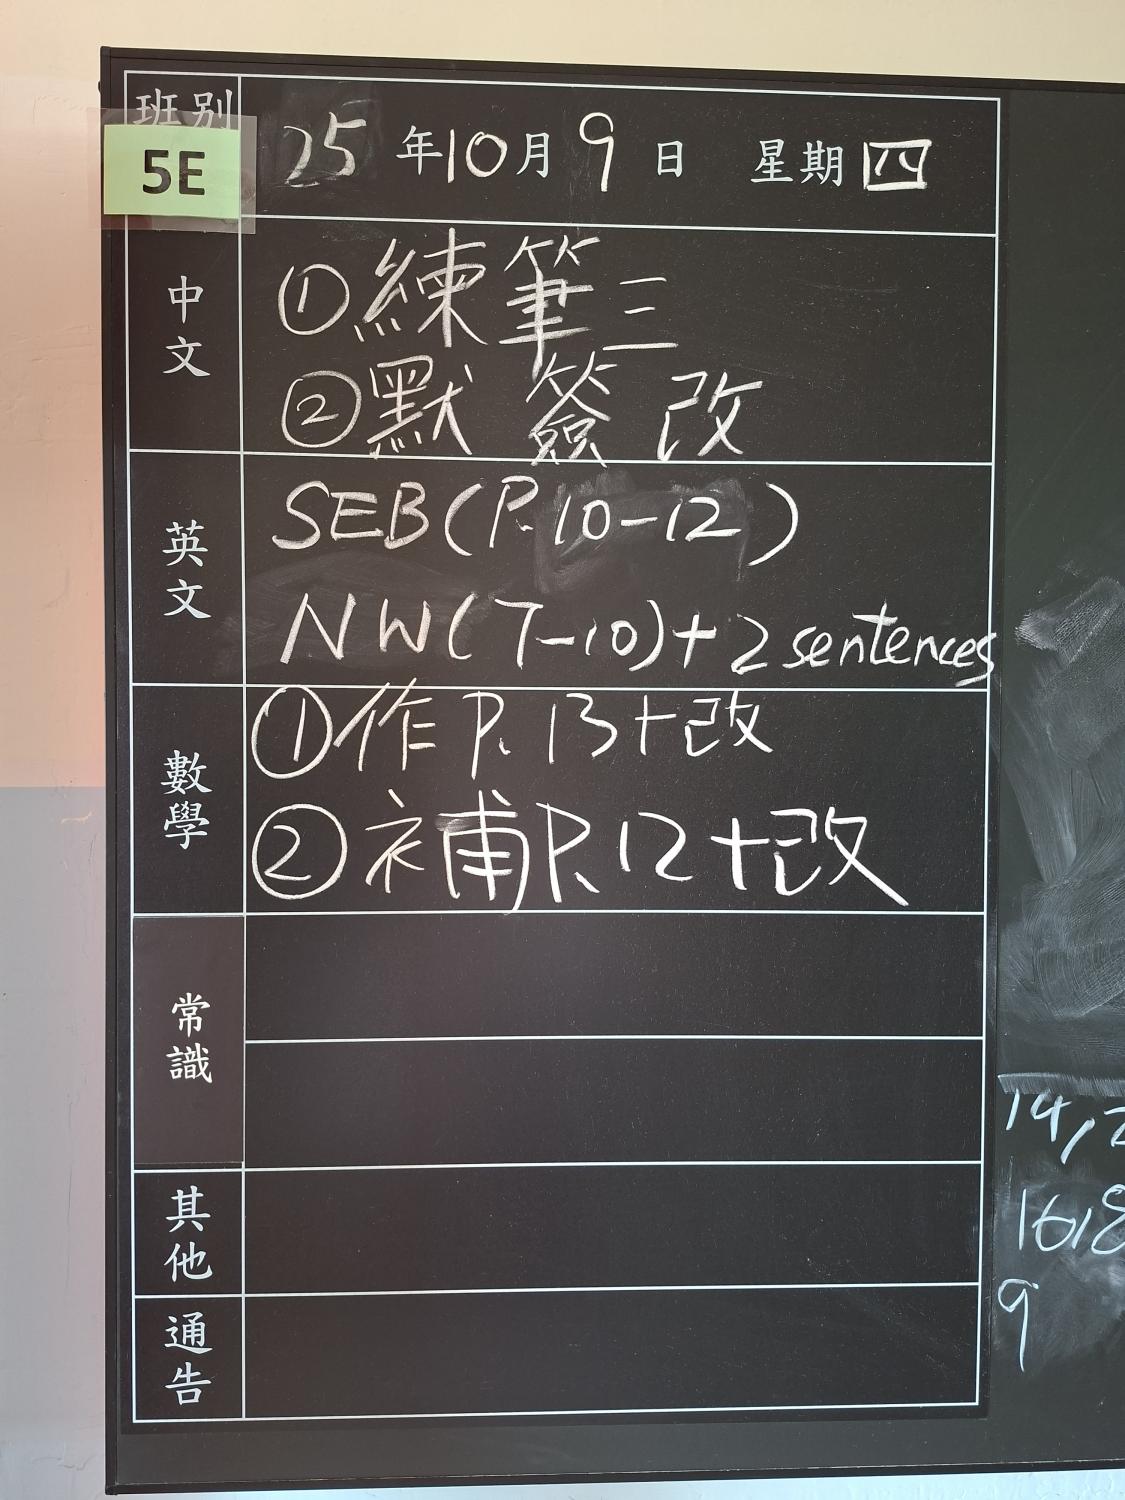 班別 5E
25年10月9日 星期四
中文
①練筆三
②默 簽 改
英文
SEB(P.10-12)
NW(7-10)+2 sentences
數學
①作P.13+改
②補P.12+改
常識
其他
通告
14,
16,8
9